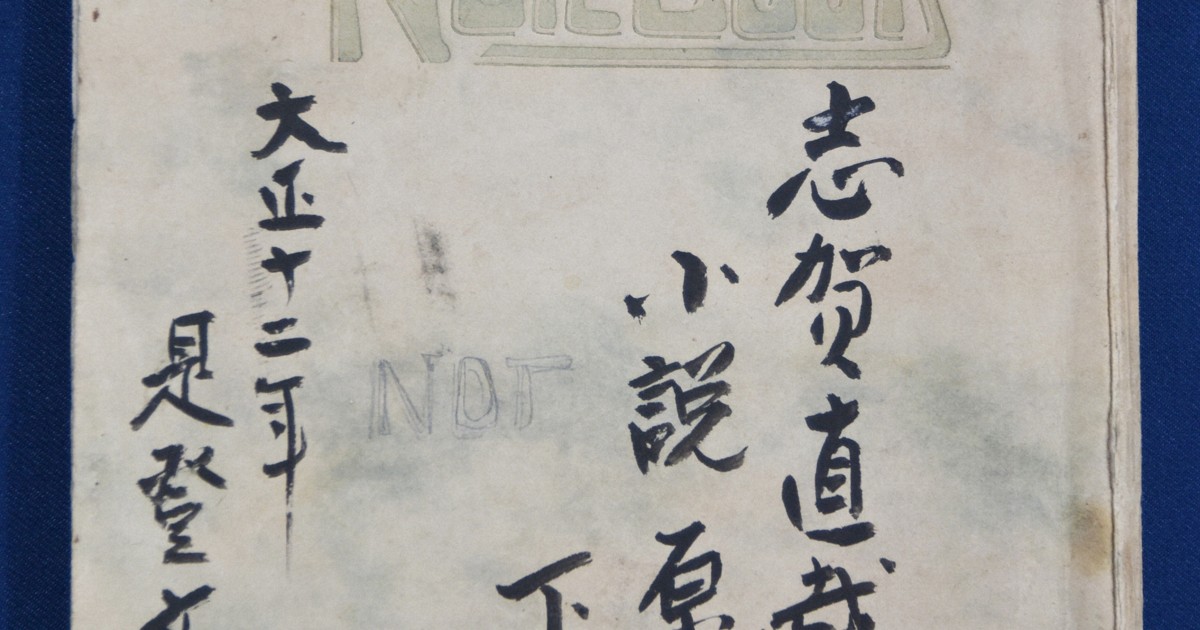 NoteBook
志賀直哉
小説 原
下
NOT
大正十二年
是登